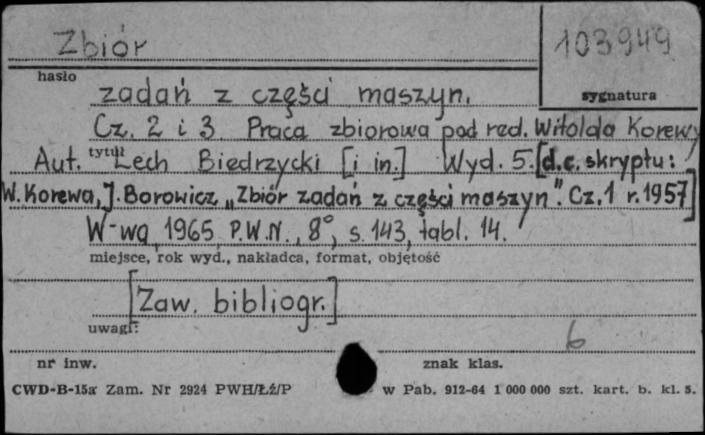 Zbiór
103949
hasło
sygnatura
zadań z części maszyn.
Cz. 2 i 3 Praca zbiorowa pod red. Witolda Korewy
tytuł
Aut. Lech Biedrzycki [i in.] Wyd. 5. [d.c. skryptu:
W. Korewa, J. Borowicz „Zbiór zadań z części maszyn". Cz. 1 r. 1957]
W-wa 1965 P.W.N., 8°, s. 143, tabl. 14.
miejsce, rok wyd., nakładca, format, objętość
[Zaw. bibliogr.]
uwagi:
6
nr inw.
znak klas.
CWD-B-15a Zam. Nr 2924 PWH/Łź/P
w Pab. 912-64 1 000 000 szt. kart. b. kl. 5.